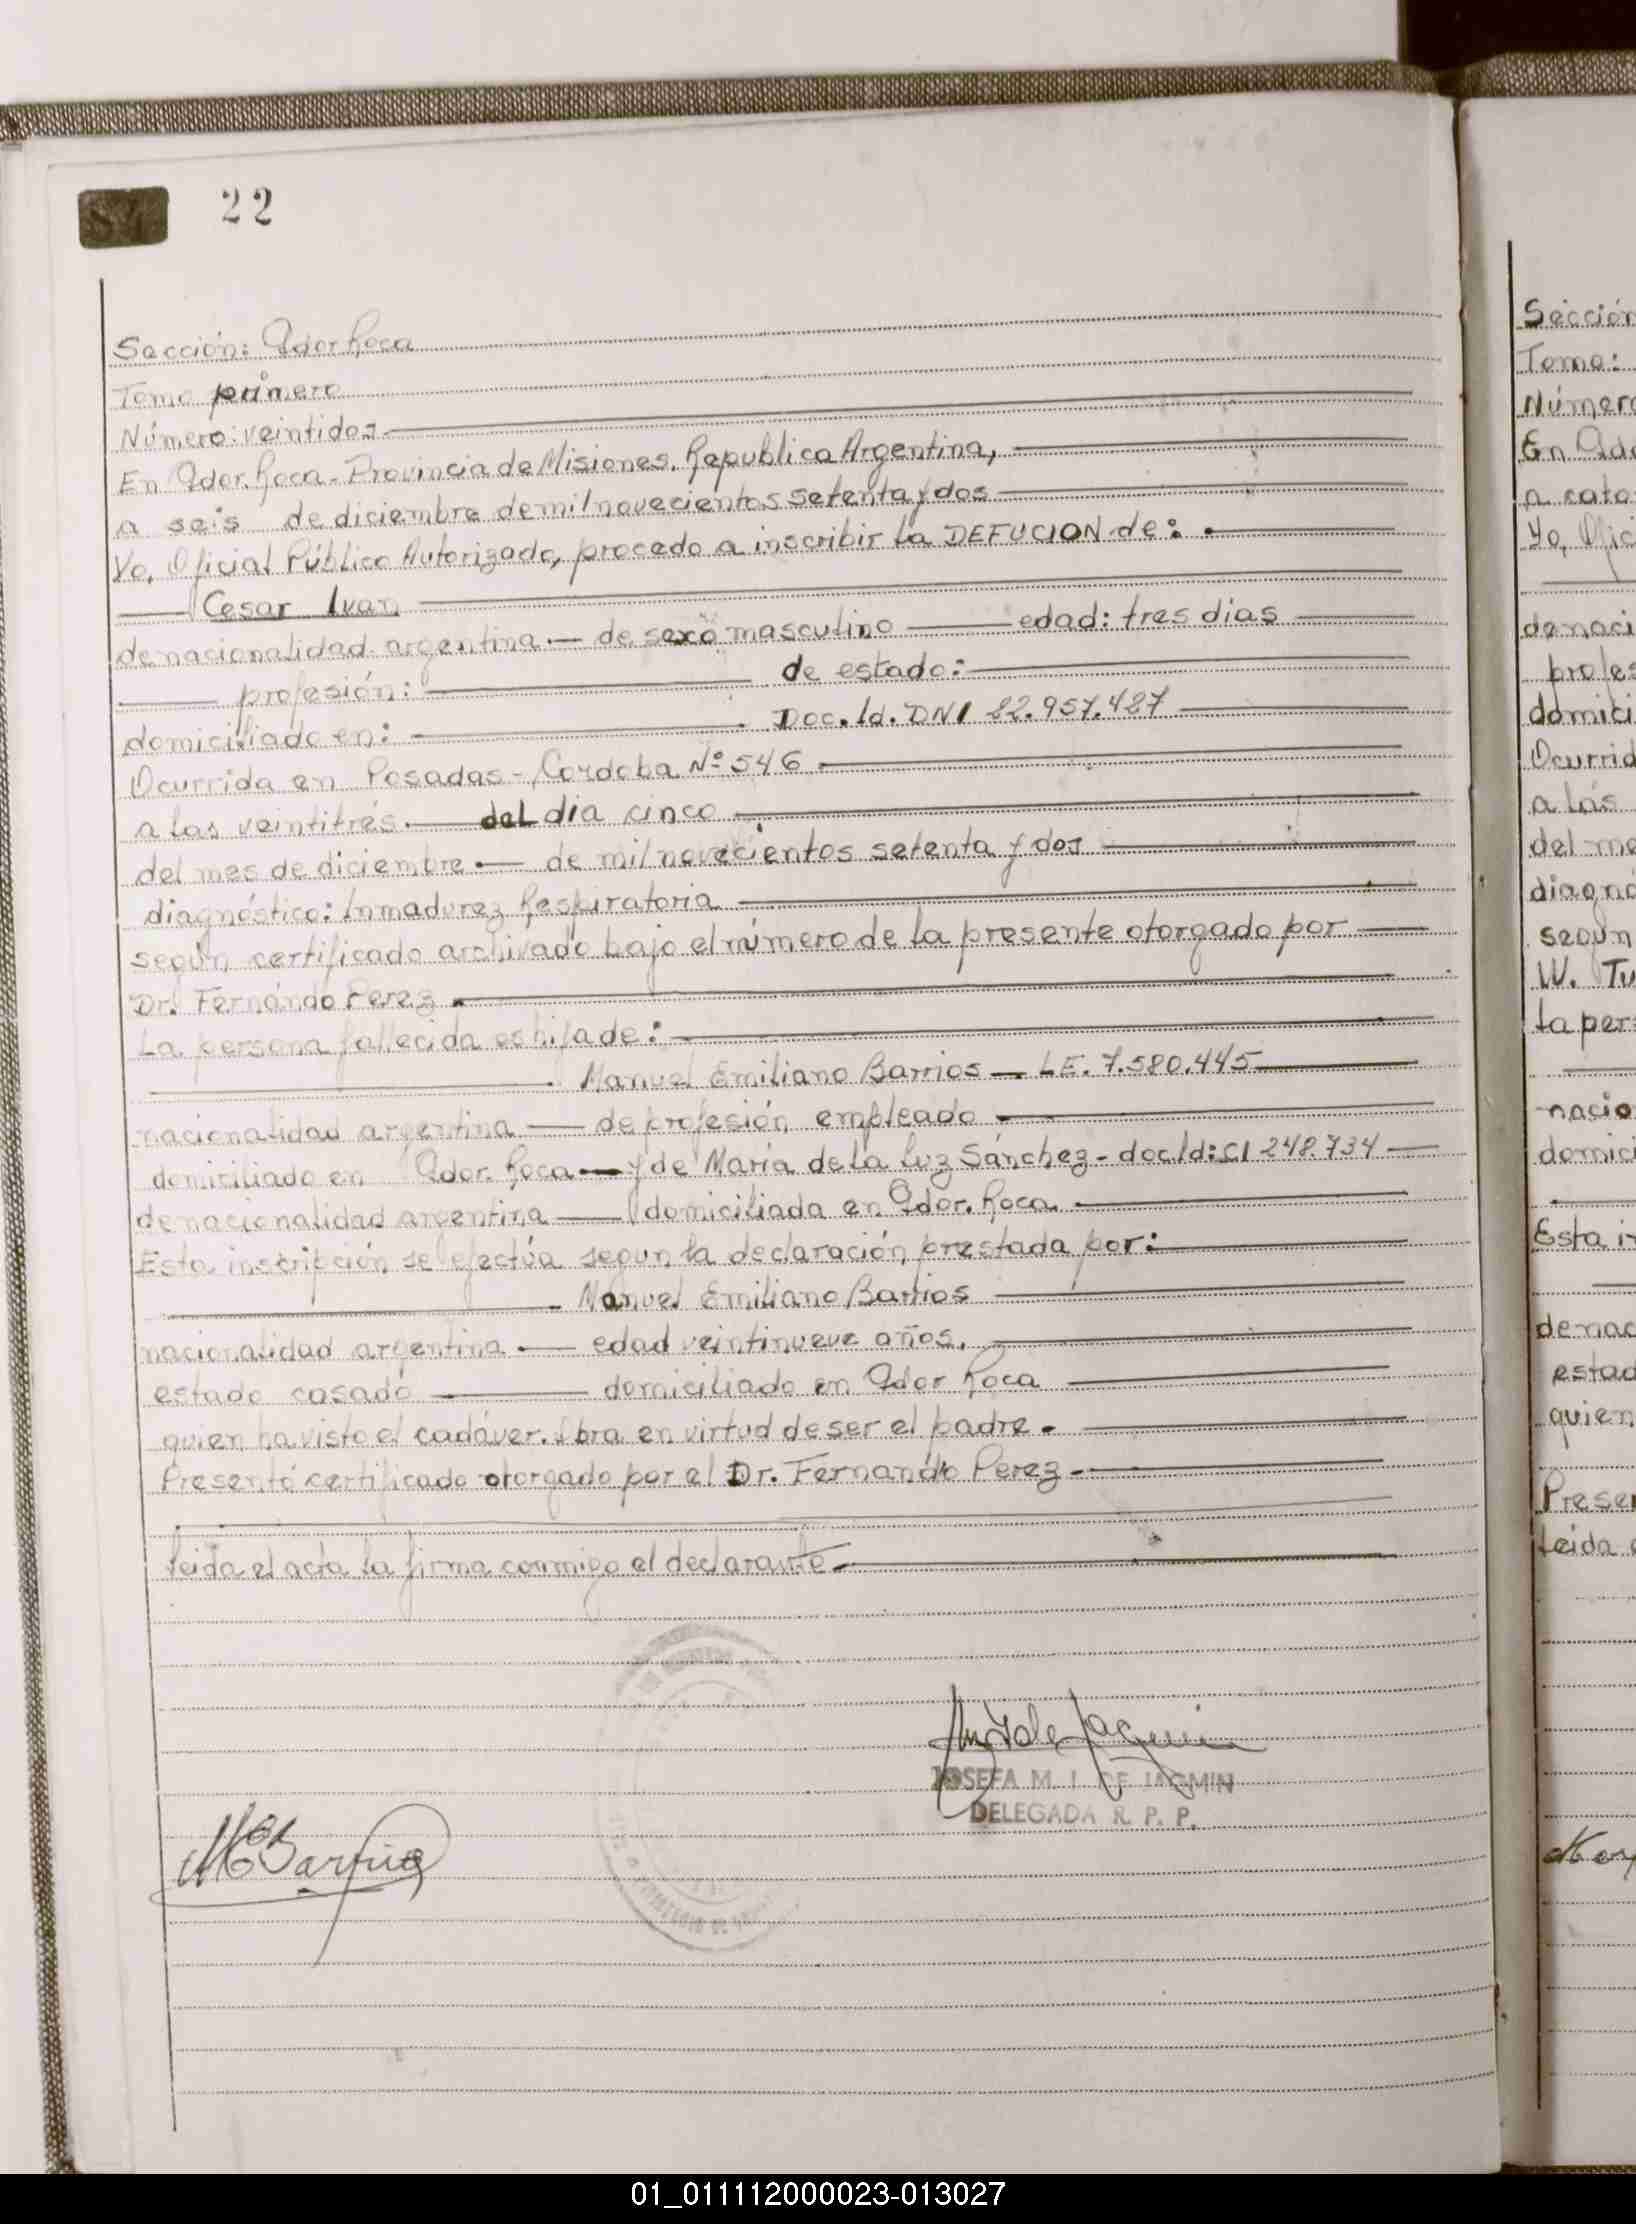 22
Sección: Gdor Roca
Tomo primero
Número: veintidos
En Gdor. Roca - Provincia de Misiones. Republica Argentina,
a seis de diciembre de mil novecientos setenta y dos
Yo, Oficial Público Autorizado, procedo a inscribir la DEFUCION de:
Cesar Ivan
de nacionalidad argentina — de sexo masculino — edad: tres dias
profesión: — de estado:
domiciliado en: — Doc. Id. DNI 22.957.427
Ocurrida en Posadas - Cordoba Nº 546
a las veintitrés — del dia cinco
del mes de diciembre — de mil novecientos setenta y dos
diagnóstico: Inmadurez Respiratoria
según certificado archivado bajo el número de la presente otorgado por
Dr. Fernándo Perez
La persona fallecida es hija de:
Manuel Emiliano Barrios — LE. 7.580.445
nacionalidad argentina — de profesión empleado
domiciliado en Gdor. Roca — y de María de la Luz Sánchez - doc Id: CI 248.734
de nacionalidad argentina — domiciliada en Gdor. Roca
Esta inscripción se efectúa segun la declaración prestada por:
Manuel Emiliano Barrios
nacionalidad argentina — edad veintinueve años,
estado casado — domiciliado en Gdor Roca
quien ha visto el cadáver. Obra en virtud de ser el padre.
Presentó certificado otorgado por el Dr. Fernándo Perez-
leida el acta la firma conmigo el declarante
JOSEFA M. I. DE JAQMIN
DELEGADA R. P. P.
MEBarrios
Sección
Tomo:
Número
En Gdo
a cato
Yo, Ofic
denaci
profes
domici
Ocurrid
a las
del me
diagnó
segun
W. Tu
la pers
nacio
domici
Esta i
denac
estad
quien
Presen
leida
01_011112000023-013027